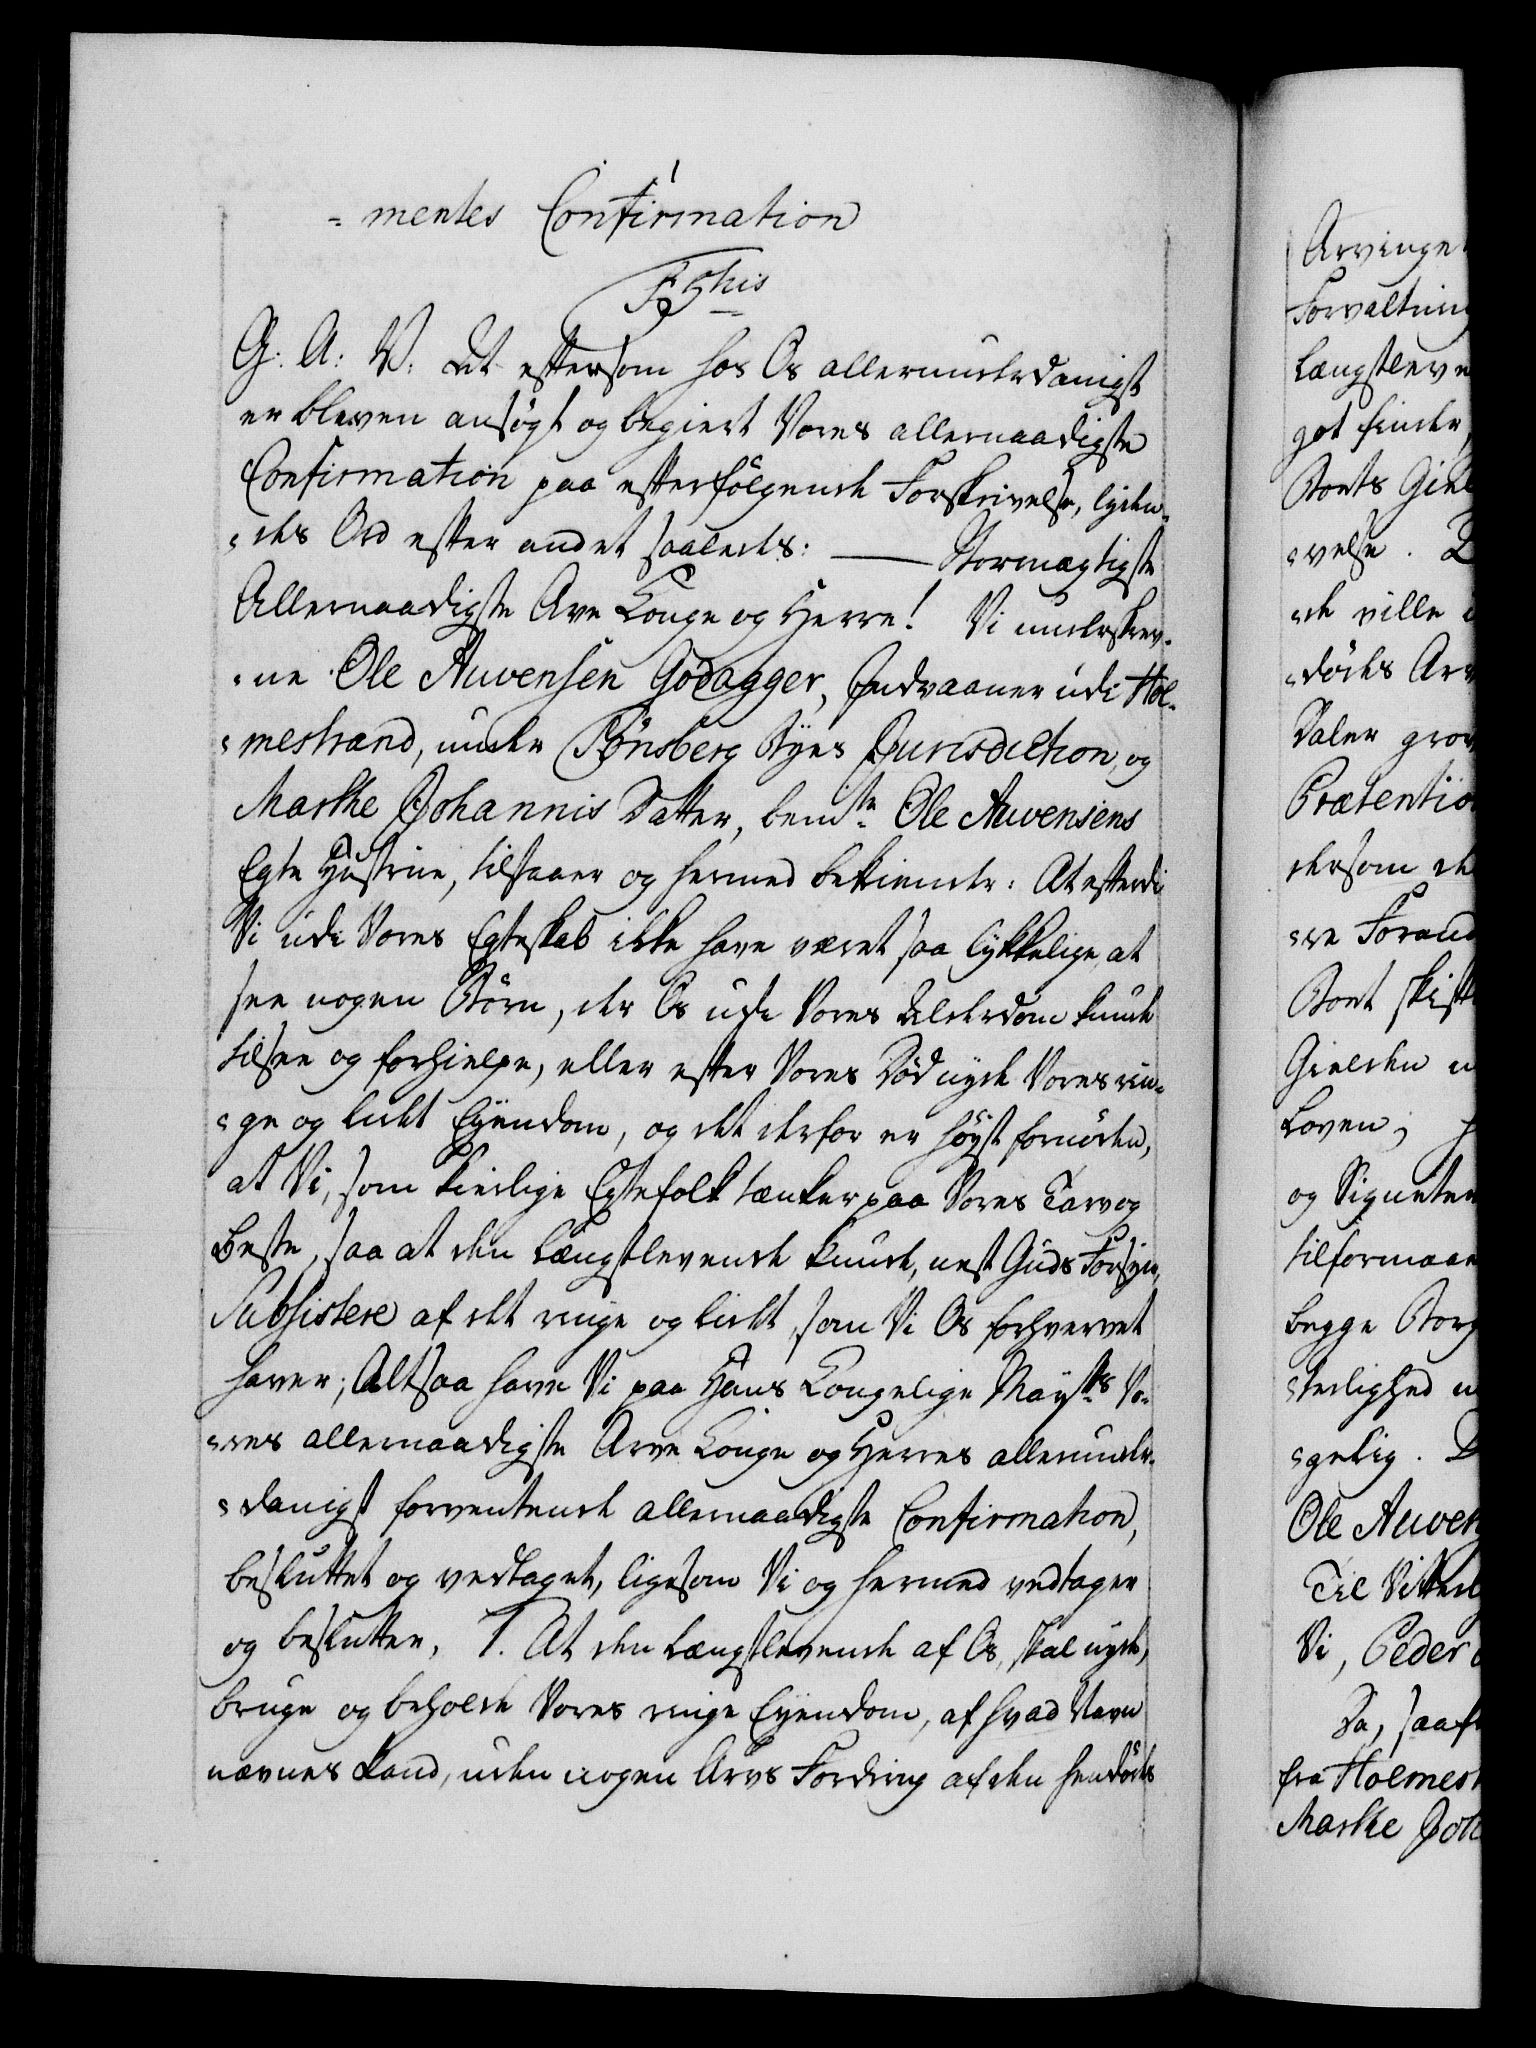 = mentes Confirmation
G: A: V: At eftersom hos Os allerunderdanigst
er bleven ansøgt og begiert Vores allernaadigste
Confirmation paa efterfølgende Forskrivelse, lyden-
-des Ord efter andet saaledes: — Stormægtigste
Allernaadigste Arve Konge og Herre! Vi underskrev-
-ne Ole Auvensen Godagger, Indvaaner udi Hol-
-mestrand, under Tønsberg Byes Jurisdiction, og
Marthe Johannis Datter, bemte Ole Auvensens
Egte Hustrue, tilstaaer og hermed bekiender: At efterdi
Vi udi Vores Egteskab ikke have været saa lykkelige, at
see nogen Børn, der Os udi Vores Alderdom kunde
tilsee og forhielpe, eller efter Vores Død nyde Vores rin-
-ge og lidet Eyendom, og det derfor er høyst fornøden,
at Vi, som kierlige Egtefolk tænker paa Vores Tarv og
Beste, saa at den Længstlevende kunde, nest Guds Forsyn,
Subsistere af det ringe og lidet, som Vi Os forhvervet
haver; Altsaa have Vi paa Hans Kongelige Maysts Vo-
-res allernaadigste Arve Konge og Herres allerunder-
-danigst forventende allernaadigste Confirmation,
besluttet og vedtaget, ligesom Vi og hermed vedtager
og beslutter, 1. At den Længstlevende af Os, skal nyde,
bruge og beholde Vores ringe Eyendom, af hvad Navn
nævnes kand, uden nogen Arvs Fordring af den hendødes
Arvinge
Forvaltning
Længstleve
got finder,
Boets Giel
-velse.
-de ville
-dødes Arv
Daler grov
Prætention
dersom de
-re Forand
Boet skift
Gielden u
Loven;
og Signeter
tilformaae
begge Borg
-terlighed u
-gelig.
Ole Auven
Til Vitterl
Vi, Peder
Da, saaf
fra Holmes
Marthe Joh